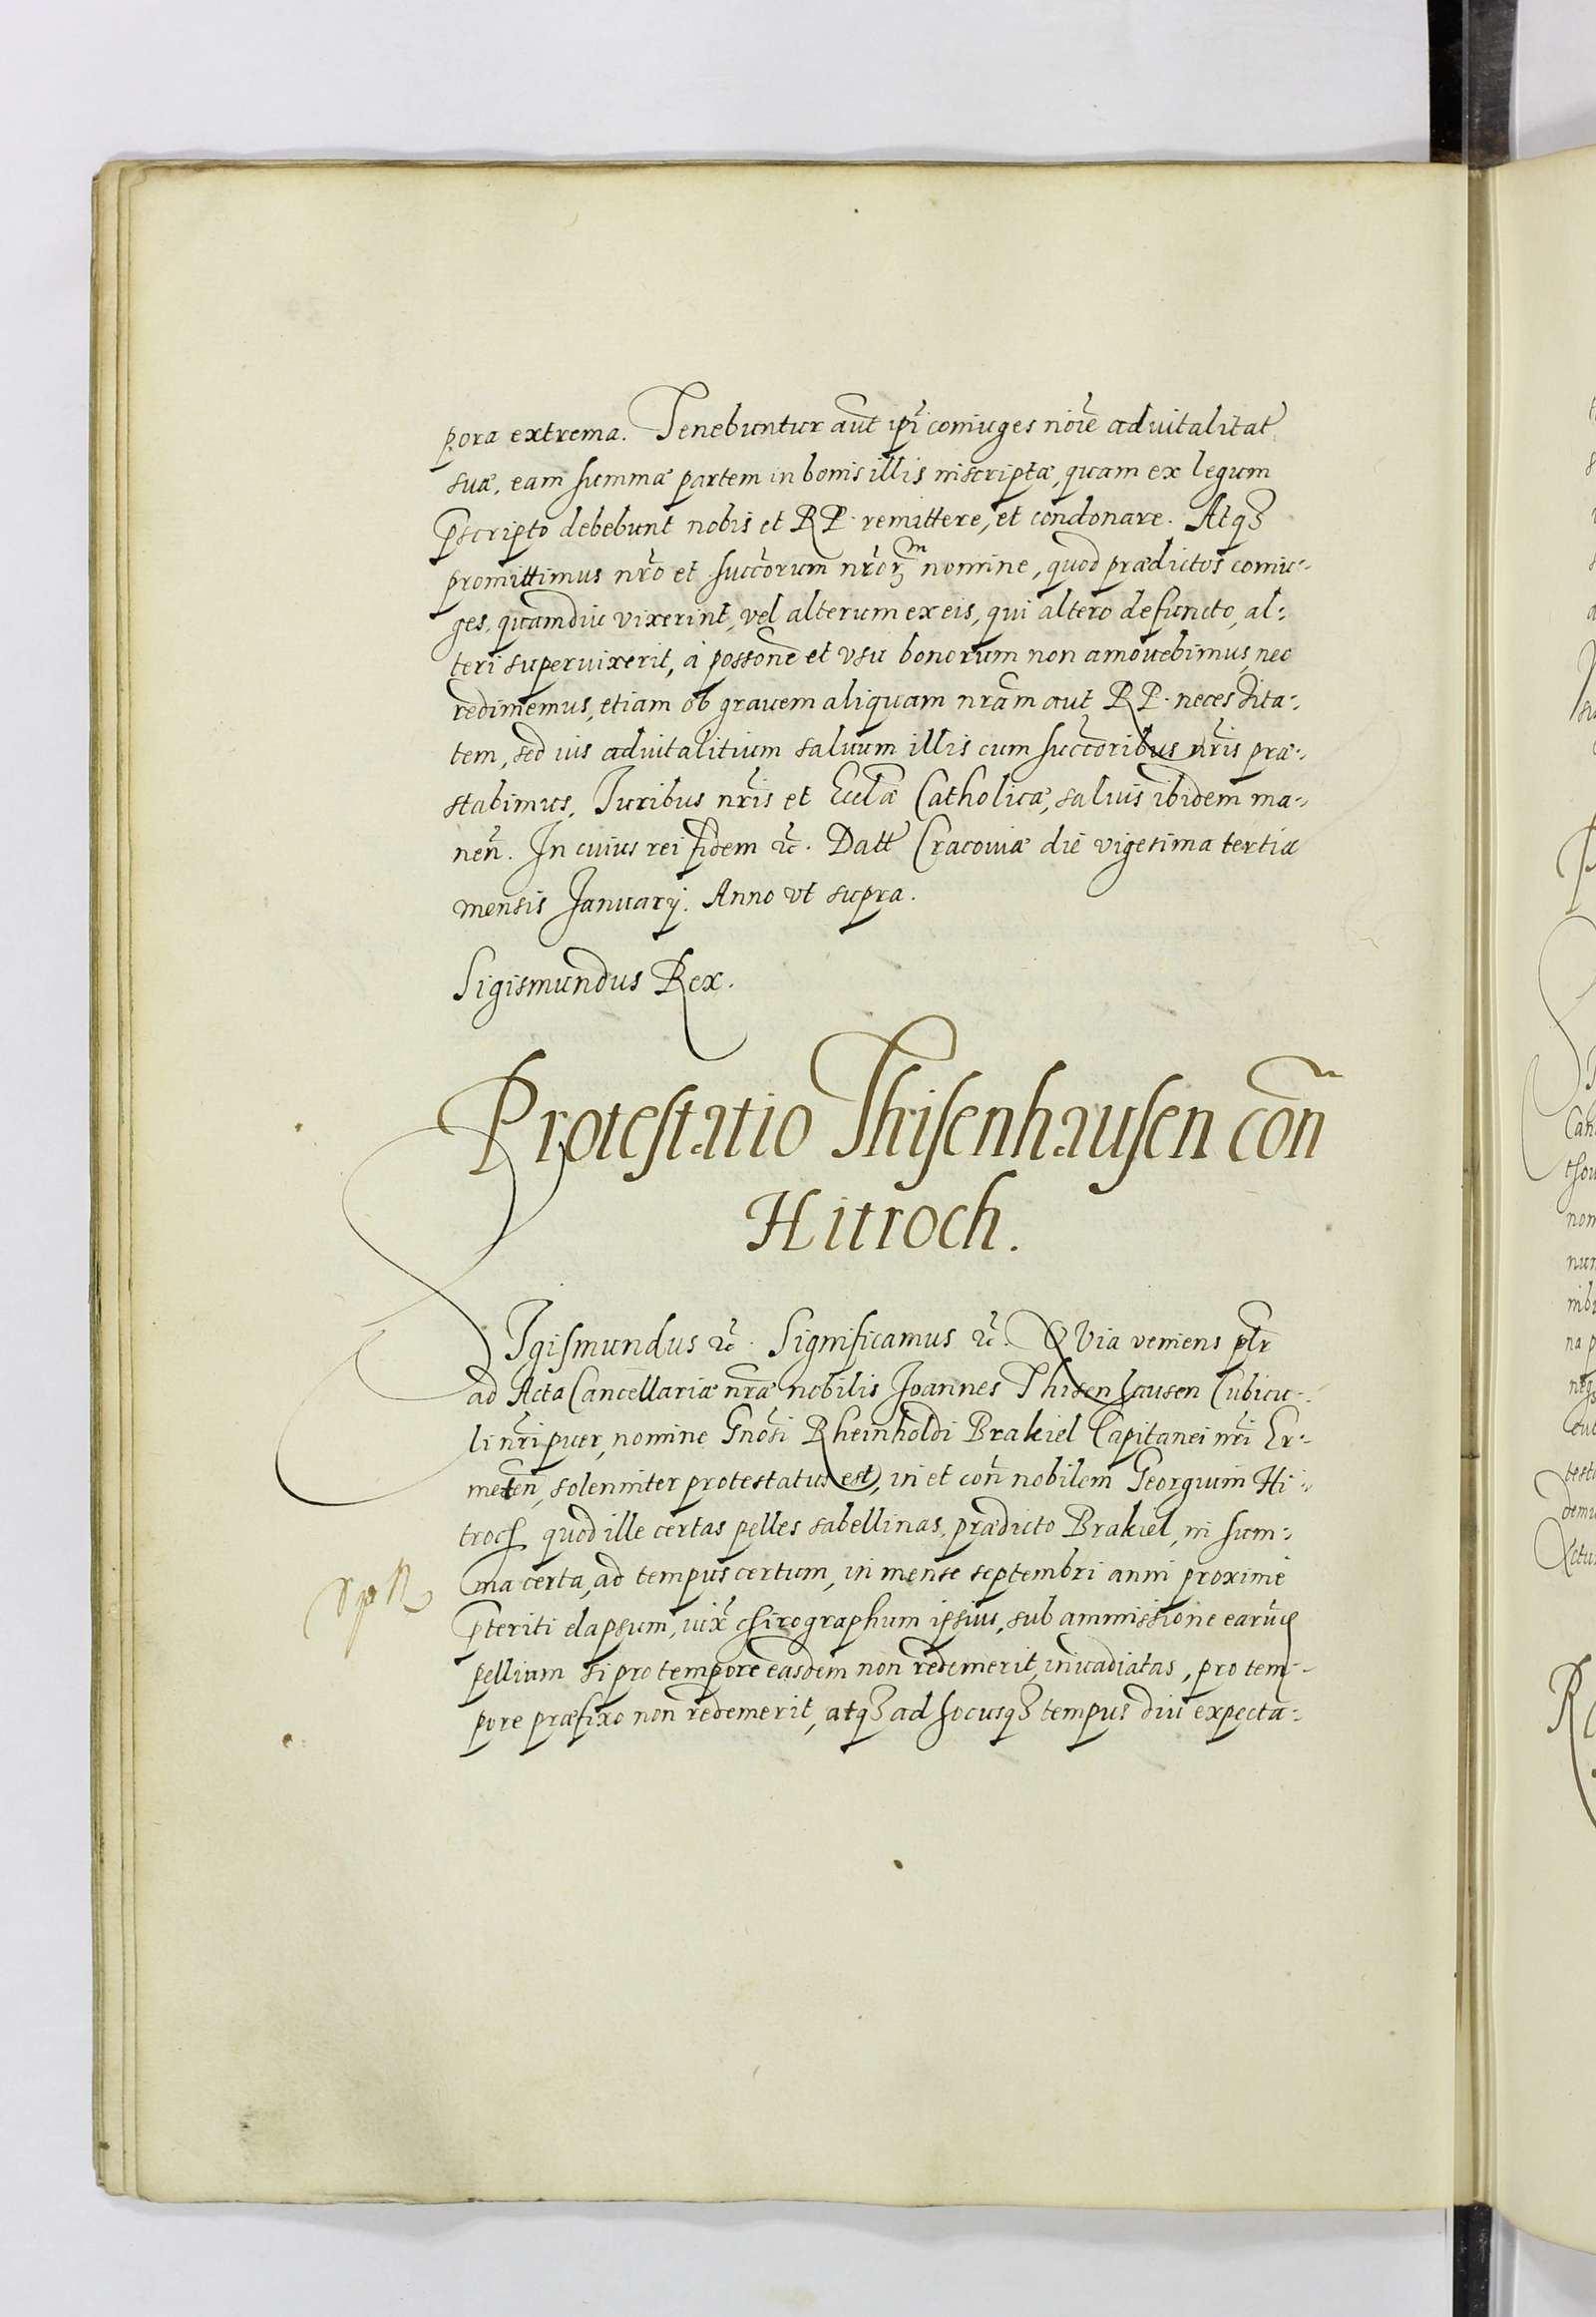 pora extrema. Tenebuntur aut̃ ip̃i coniuges noĩe aduitalitat̃
suæ, eam summæ partem in bonis illis inscriptæ, quam ex legum
p̃scripto debebunt nobis et RP. remittere, et condonare. Atq3
promittimus nr̃o et succ̃orum nr̃orꝝ nomine, quod prædictos coniu-
ges, quamdiu vixerint, vel alterum ex eis, qui altero defuncto, al-
teri superuixerit, à possoñe et vsu bonorum non amouebimus, nec
redimemus, etiam ob grauem aliquam nr̃am aut RP. necessita-
tem, sed ius aduitalitium saluum illis cum succ̃oribus nr̃is præ-
stabimus, Juribus nr̃is et Eccl̃æ Catholicæ, saluis ibidem ma-
neñ. In cuius rei fidem ꝛc̃. Datt̃ Cracouiæ die vigesima tertia
mensis Januarij. Anno vt supra.
Sigismundus Rex.
Protestatio Thisenhausen coñ
Hitroch.
SIgismundus ꝛc̃. Significamus ꝛc̃. QVia veniens pl̃r
ad Acta Cancellariæ nr̃æ nobilis Joannes Thisenhausen Cubicu-
li nr̃i puer, nomine Gnõsi Rheinholdi Brakiel Capitanei nr̃i Er-
meteñ, solenniter protestatus est, in et coñ nobilem Georgium Hi-
troch quod ille certas pelles sabellinas, prædicto Brakiel, in sum-
ma certa, ad tempus certum, in mense septembri anni proxime
p̃teriti elapsum, iux̃ chirographum ipsius, sub ammissione earuṽ
pellium si pro tempore easdem non redemerit, inuadiatas, pro tem-
pore præfixo non redemerit, atq3 ad hocusq3 tempus diu expecta-